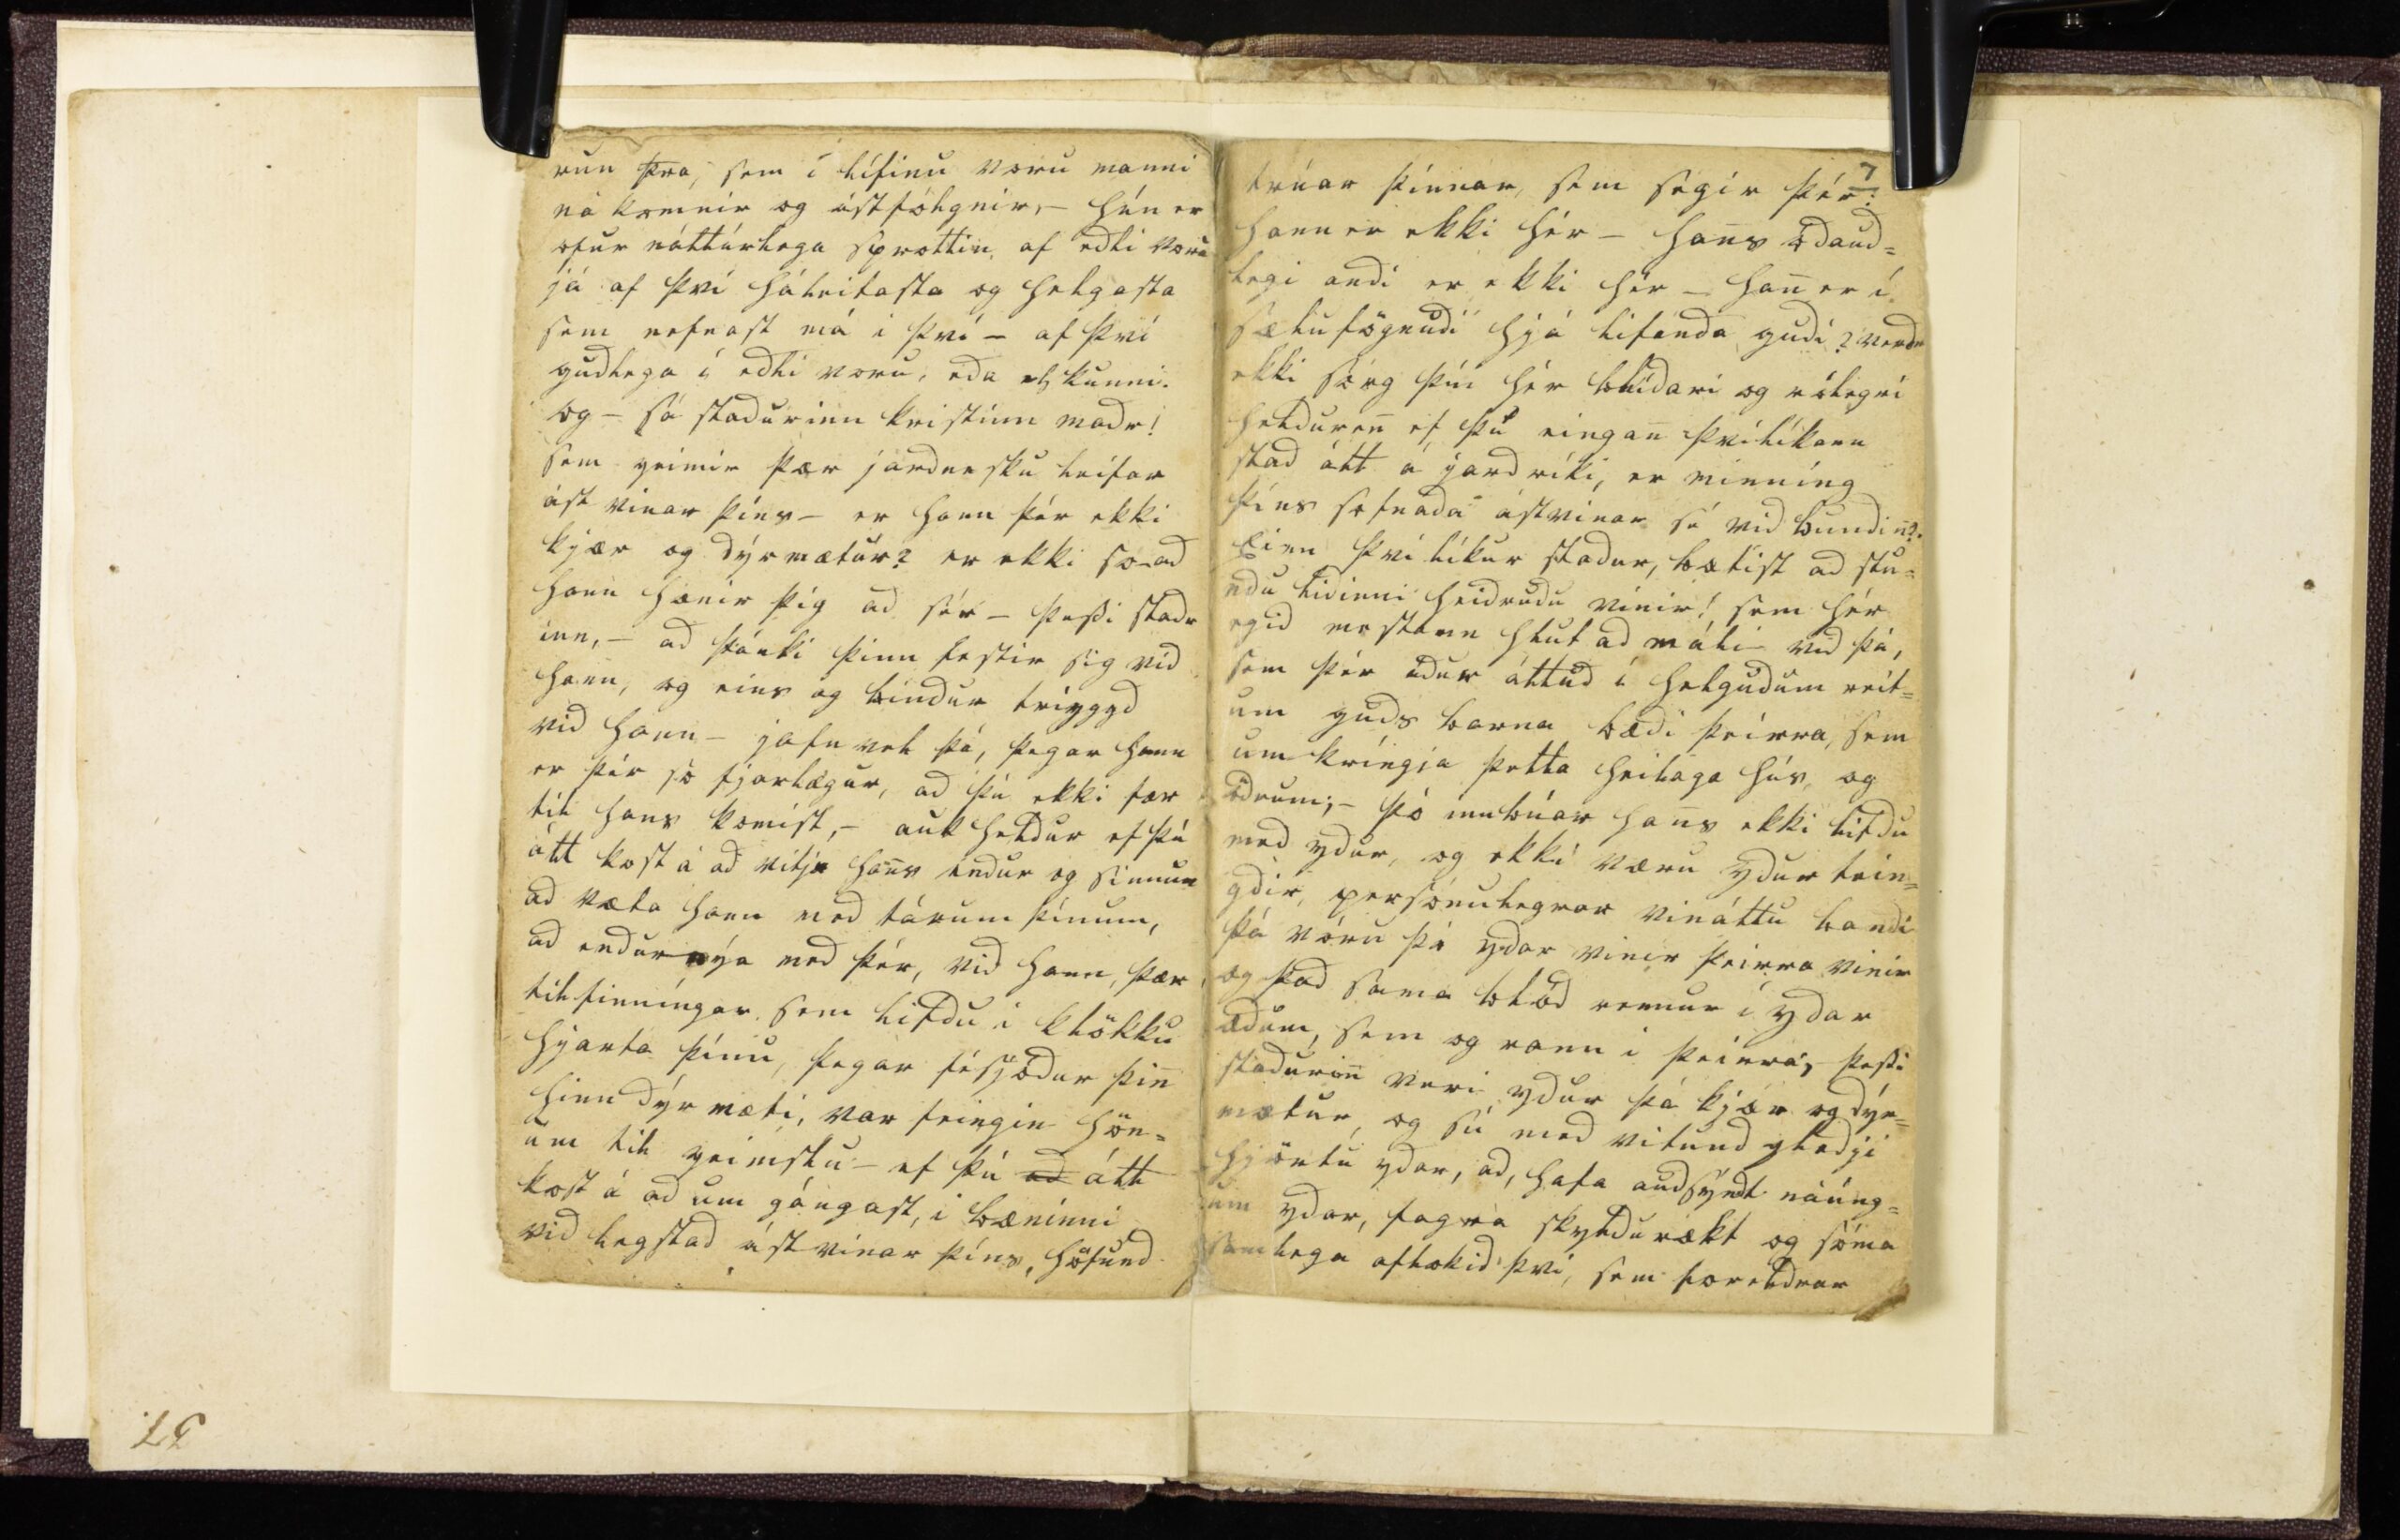 run þra, sem í lífinu voru manni
nákomnir og ástfólgnir, - hún er
ofur náttúrlega sprottin af eðli voru
já af því háleitasta og helgasta
sem nefnast má í því - af því
guðlega í eðli voru, eða elskunni.
Og - sá staðurinn kristinn maðr!
sem geimir þær jarðnesku leifar
ástvinar þíns - er hann þér ekki
kjær og dýrmætur? er ekki so að
hann hænir þig að sér - þessi staðr
inn, - að þánki þinn festir sig við
hann, og eins og bindur trïyggð
við hann - jafnvel þá, þegar hann
er þér so fjærlægur, að þú ekki fær
til hans komist, - auk heldur ef þú
átt kost á að vitja hans endur og sinnum
að væta hann með tárum þínum,
að endurnýa með þér, við hann, þær
tilfinníngar sem lifðu í klökku
hjarta þínu, þegar fésjóður þinn
hinn dýrmæti, var feingin hön=
um til geimslu - ef þú að átt
kost á að umgángast, í bæninni
við legstað ástvinar þíns, höfund
7
trúar þinnar, sem segir þér:
hann er ekki hér - hans ódauð=
legi andi er ekki hér - hann er í
sælufögnuði hjá lifanda guði? verðr
ekki sorg þín hér blíðari og rólegri
heldur en ef þú eingan þvílíkann
stað átt á jarðríki, er minníng
þíns sofnaða ástvinar sé við bundin?.
Einn þvílíkur staður, bætist að stu=
ndu liðinni heiðruðu vinir! sem hér
egið mestann hlut að máli við þá,
sem þér áður áttuð í helguðum reit=
um guðs barna bæði þeirra, sem
umkríngja þetta heilaga hús, og
öðrum; - þó innbúar hans ekki lifðu
með yður, og ekki væru yður tein=
gdir, persónulegrar vináttu bandi
þá vóru þó yðar vinir þeirra vinir
og það sama blóð rennur í yðar
æðum, sem og rann í þeirra, - þessi
staðurinn veri yður þá kjær og dýr=
mætur, og sú með vitund gleðji
hjörtu yðar, að hafa auðsýndt náúng=
um yðar, fagra skyldurækt og sóma
samlega aflokið því, sem foreldrar
37